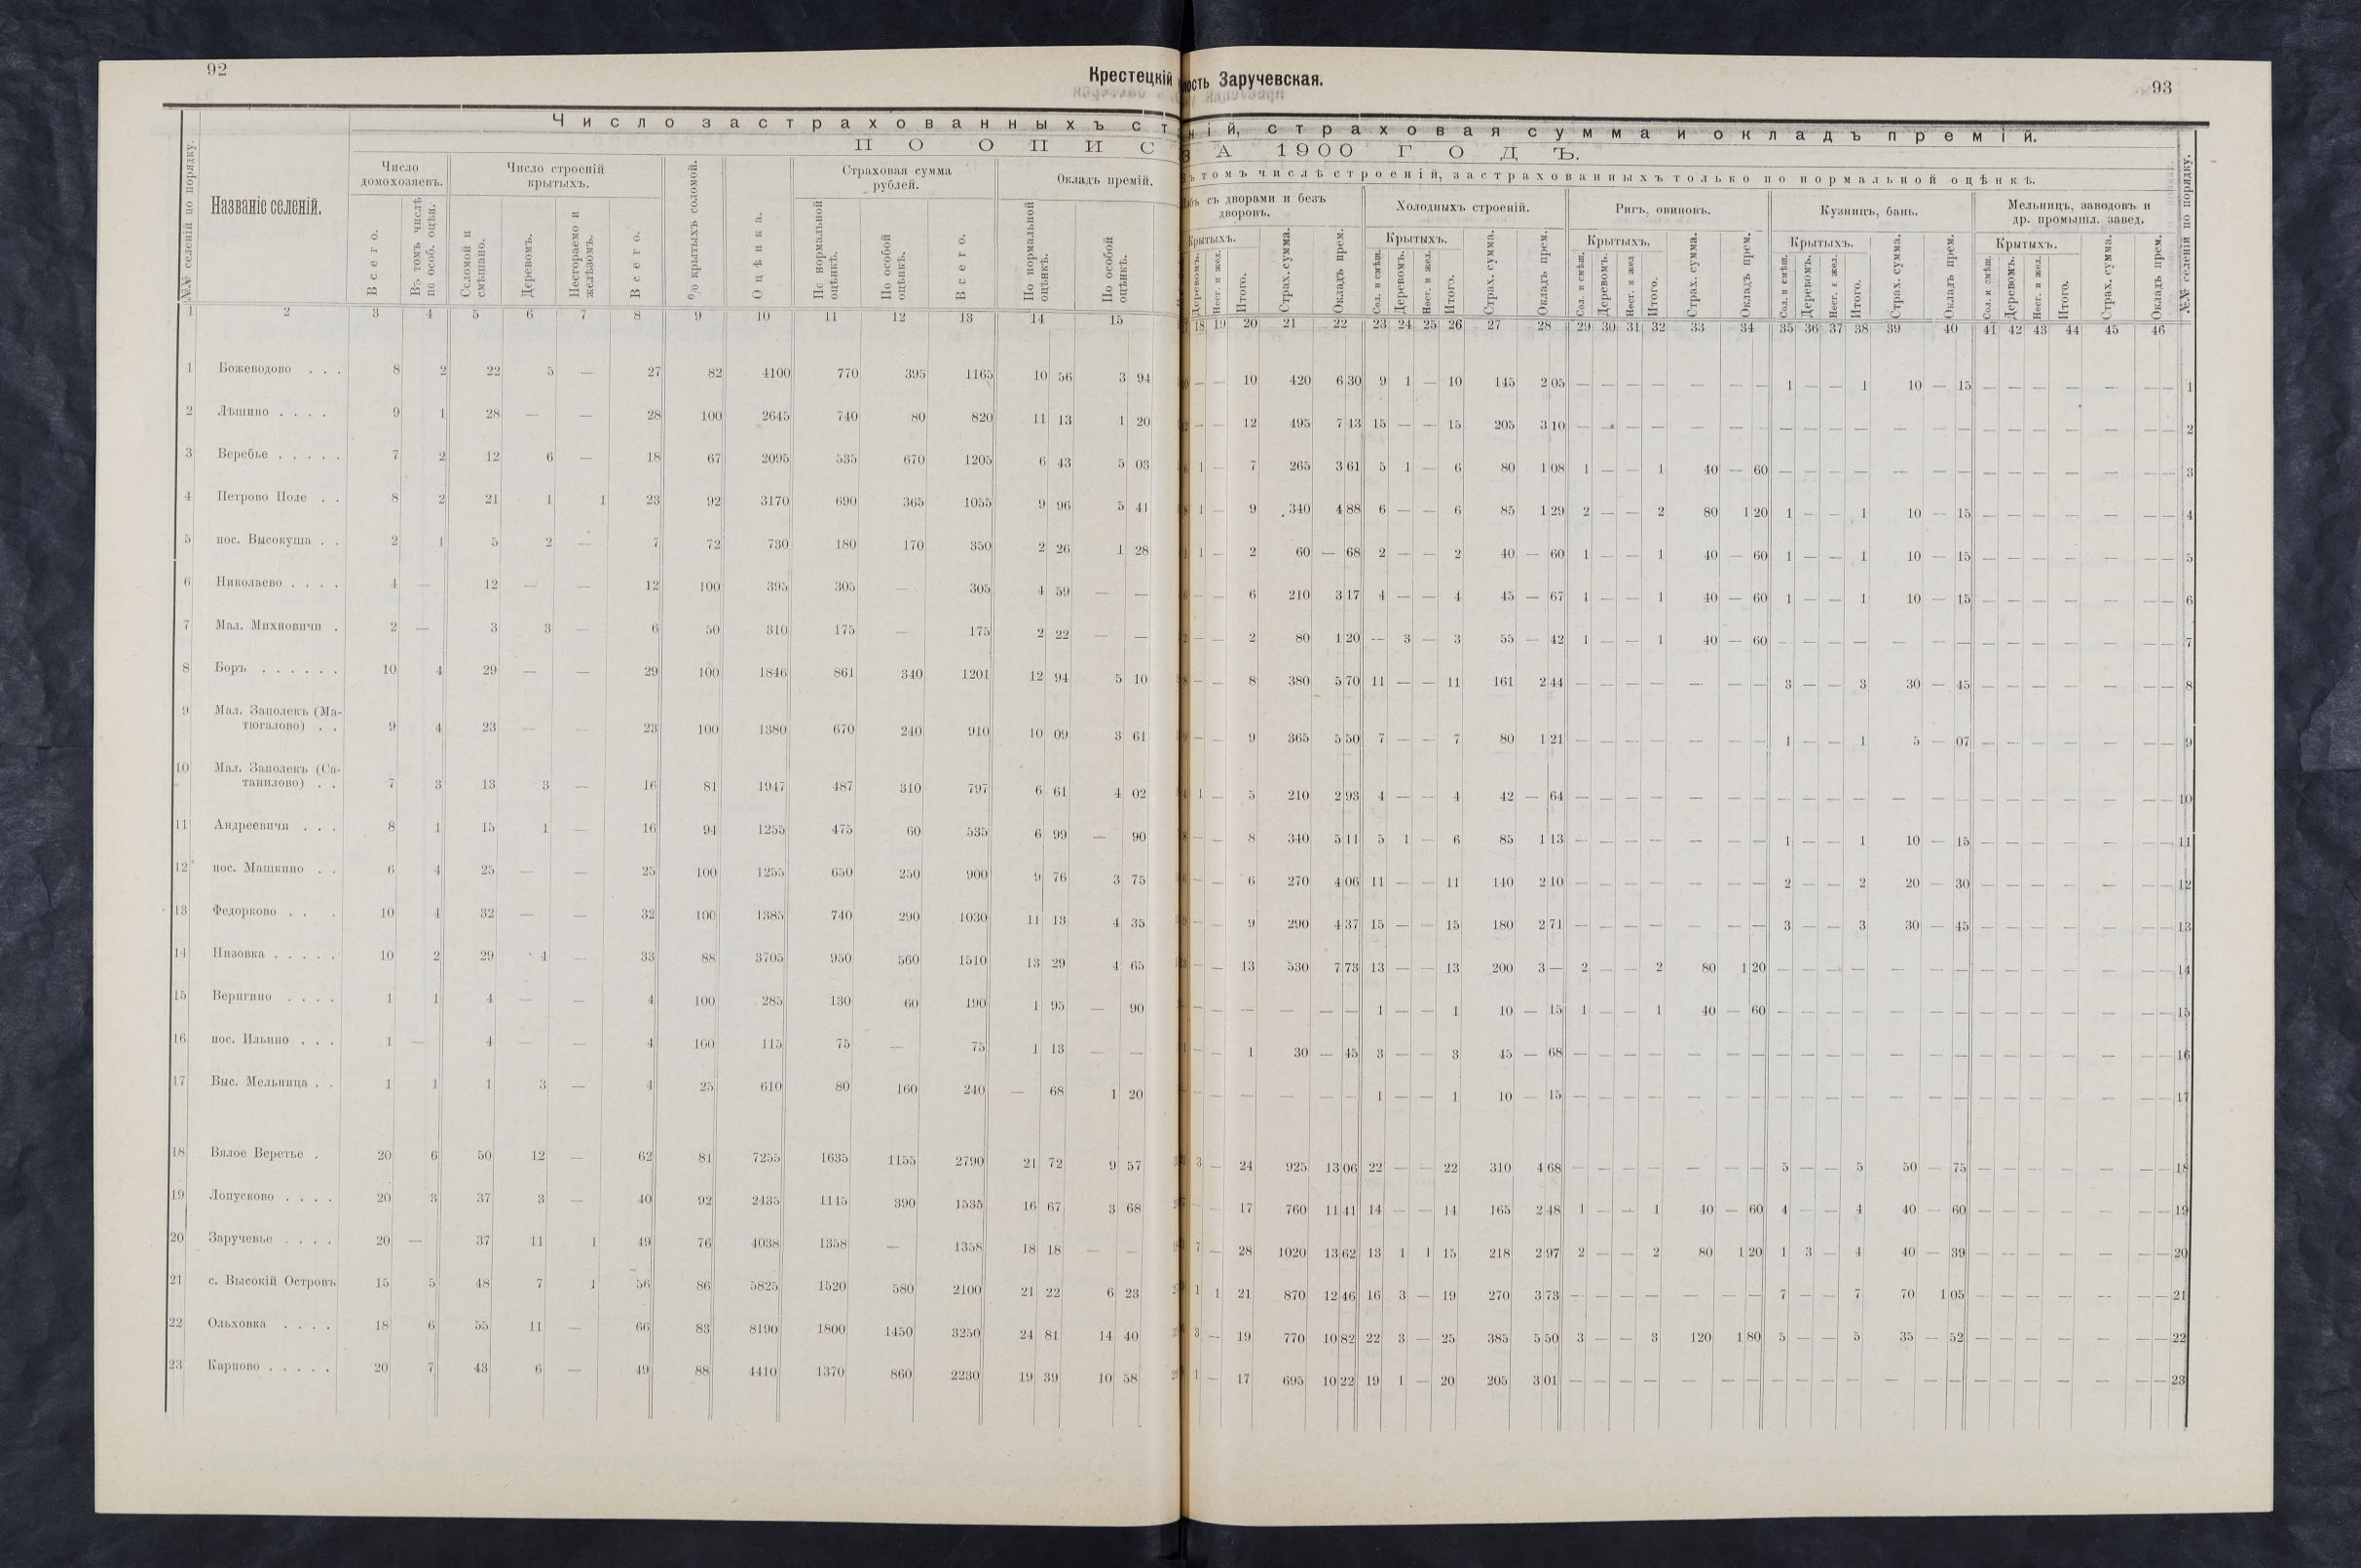 92
Крестецкій
ость Заручевская.
93
Число застрахованныхъ ст
ній, страховая сумма и окладъ премій.
ПО ОПИС
ЗА 1900 ГОДЪ.
№№ селеній по порядку.
Названіе селеній.
Число домохозяевъ.
Всего.
Въ томъ числѣ по особ. оцѣн.
Число строеній крытыхъ.
Соломой и смѣшано.
Деревомъ.
Несгораемо и желѣзомъ.
Всего.
% крытыхъ соломой.
Оцѣнка.
Страховая сумма рублей.
По нормальной оцѣнкѣ.
По особой оцѣнкѣ.
Всего.
Окладъ премій.
По нормальной оцѣнкѣ.
По особой оцѣнкѣ.
въ томъ числѣ строеній, застрахованныхъ только по нормальной оцѣнкѣ.
съ дворами и безъ дворовъ.
Крытыхъ.
Деревомъ.
Несг. и жел.
Итого.
Страх. сумма.
Окладъ прем.
Холодныхъ строеній.
Крытыхъ.
Сол. и смѣш.
Деревомъ.
Несг. и жел.
Итого.
Страх. сумма.
Окладъ прем.
Ригъ, овиновъ.
Крытыхъ.
Сол. и смѣш.
Деревомъ.
Несг. и жел
Итого.
Страх. сумма.
Окладъ прем.
Кузницъ, бань.
Крытыхъ.
Сол. и смѣш.
Деревомъ.
Несг. и жел.
Итого.
Страх. сумма.
Окладъ прем.
Мельницъ, заводовъ и др. промышл. завед.
Крытыхъ.
Сол. и смѣш.
Деревомъ.
Несг. и жел.
Итого.
Страх. сумма.
Окладъ прем.
№№ селеній по порядку.
1 2 3 4 5 6 7 8 9 10 11 12 13 14 15 18 19 20 21 22 23 24 25 26 27 28 29 30 31 32 33 34 35 36 37 38 39 40 41 42 43 44 45 46
1 Божеводово . . . 8 2 22 5 — 27 82 4100 770 395 1165 10 56 3 94 — — 10 420 6 30 9 1 — 10 145 2 05 — — — — — — — 1 — — 1 10 — 15 — — — — — — — 1
2 Лѣшино . . . . 9 1 28 — — 28 100 2645 740 80 820 11 13 1 20 — — 12 495 7 43 15 — — 15 205 3 10 — — — — — — — — — — — — — — — — — — — — — 2
3 Веребье . . . . . 7 2 12 6 — 18 67 2095 535 670 1205 6 43 5 03 1 — 7 265 3 61 5 1 — 6 80 1 08 1 — — 1 40 — 60 — — — — — — — — — — — — — — 3
4 Петрово Поле . . 8 2 21 1 1 23 92 3170 690 365 1055 9 96 5 41 1 — 9 340 4 88 6 — — 6 85 1 29 2 — — 2 80 1 20 1 — — 1 10 — 15 — — — — — — — 4
5 пос. Высокуша . . 2 1 5 2 — 7 72 730 180 170 350 2 26 1 28 1 — 2 60 — 68 2 — — 2 40 — 60 1 — — 1 40 — 60 1 — — 1 10 — 15 — — — — — — — 5
6 Николаево . . . . 4 — 12 — — 12 100 395 305 — 305 4 59 — — — — 6 210 3 17 4 — — 4 45 — 67 1 — — 1 40 — 60 1 — — 1 10 — 15 — — — — — — — 6
7 Мал. Михновичи . 2 — 3 3 — 6 50 310 175 — 175 2 22 — — — — 2 80 1 20 — 3 — 3 55 — 42 1 — — 1 40 — 60 — — — — — — — — — — — — — — 7
8 Боръ . . . . . . 10 4 29 — — 29 100 1846 861 340 1201 12 94 5 10 — — 8 380 5 70 11 — — 11 161 2 44 — — — — — — — 3 — — 3 30 — 45 — — — — — — — 8
9 Мал. Заполекъ (Ма-
тюгалово) . . 9 4 23 — — 23 100 1380 670 240 910 10 09 3 61 — — 9 365 5 50 7 — — 7 80 1 21 — — — — — — — 1 — — 1 5 — 07 — — — — — — — 9
10 Мал. Заполекъ (Са-
танилово) . . 7 3 13 3 — 16 81 1947 487 310 797 6 61 4 02 1 — 5 210 2 93 4 — — 4 42 — 64 — — — — — — — — — — — — — — — — — — — — — 10
11 Андреевичи . . . 8 1 15 1 — 16 94 1255 475 60 535 6 99 — 90 — — 8 340 5 11 5 1 — 6 85 1 13 — — — — — — — 1 — — 1 10 — 15 — — — — — — — 11
12 пос. Машкино . . 6 4 25 — — 25 100 1255 650 250 900 9 76 3 75 — — 6 270 4 06 11 — — 11 140 2 10 — — — — — — — 2 — — 2 20 — 30 — — — — — — — 12
13 Федорково . . . 10 4 32 — — 32 100 1385 740 290 1030 11 13 4 35 — — 9 290 4 37 15 — — 15 180 2 71 — — — — — — — 3 — — 3 30 — 45 — — — — — — — 13
14 Низовка . . . . . 10 2 29 4 — 33 88 3705 950 560 1510 13 29 4 65 — — 13 530 7 73 13 — — 13 200 3 — 2 — — 2 80 1 20 — — — — — — — — — — — — — — 14
15 Веригино . . . . 1 1 4 — — 4 100 285 130 60 190 1 95 — 90 — — — — — — 1 — — 1 10 — 15 1 — — 1 40 — 60 — — — — — — — — — — — — — — 15
16 пос. Ильино . . . 1 — 4 — — 4 100 115 75 — 75 1 13 — — — — 1 30 — 45 3 — — 3 45 — 68 — — — — — — — — — — — — — — — — — — — — — 16
17 Выс. Мельница . . 1 1 1 3 — 4 25 610 80 160 240 — 68 1 20 — — — — — — 1 — — 1 10 — 15 — — — — — — — — — — — — — — — — — — — — — 17
18 Вялое Веретье . 20 6 50 12 — 62 81 7255 1635 1155 2790 21 72 9 57 3 — 24 925 13 06 22 — — 22 310 4 68 — — — — — — — 5 — — 5 50 — 75 — — — — — — — 18
19 Лопусково . . . . 20 3 37 3 — 40 92 2435 1145 390 1535 16 67 3 68 — — 17 760 11 41 14 — — 14 165 2 48 1 — — 1 40 — 60 4 — — 4 40 — 60 — — — — — — — 19
20 Заручевье . . . . 20 — 37 11 1 49 76 4038 1358 — 1358 18 18 — — 7 — 28 1020 13 62 13 1 1 15 218 2 97 2 — — 2 80 1 20 1 3 — 4 40 — 39 — — — — — — — 20
21 с. Высокій Островъ 15 5 48 7 1 56 86 5825 1520 580 2100 21 22 6 23 1 1 21 870 12 46 16 3 — 19 270 3 73 — — — — — — — 7 — — 7 70 1 05 — — — — — — — 21
22 Ольховка . . . . 18 6 55 11 — 66 83 8190 1800 1450 3250 24 81 14 40 3 — 19 770 10 82 22 3 — 25 385 5 50 3 — — 3 120 1 80 5 — — 5 35 — 52 — — — — — — — 22
23 Карпово . . . . . 20 7 43 6 — 49 88 4410 1370 860 2230 19 39 10 58 1 — 17 695 10 22 19 1 — 20 205 3 01 — — — — — — — — — — — — — — — — — — — — — 23